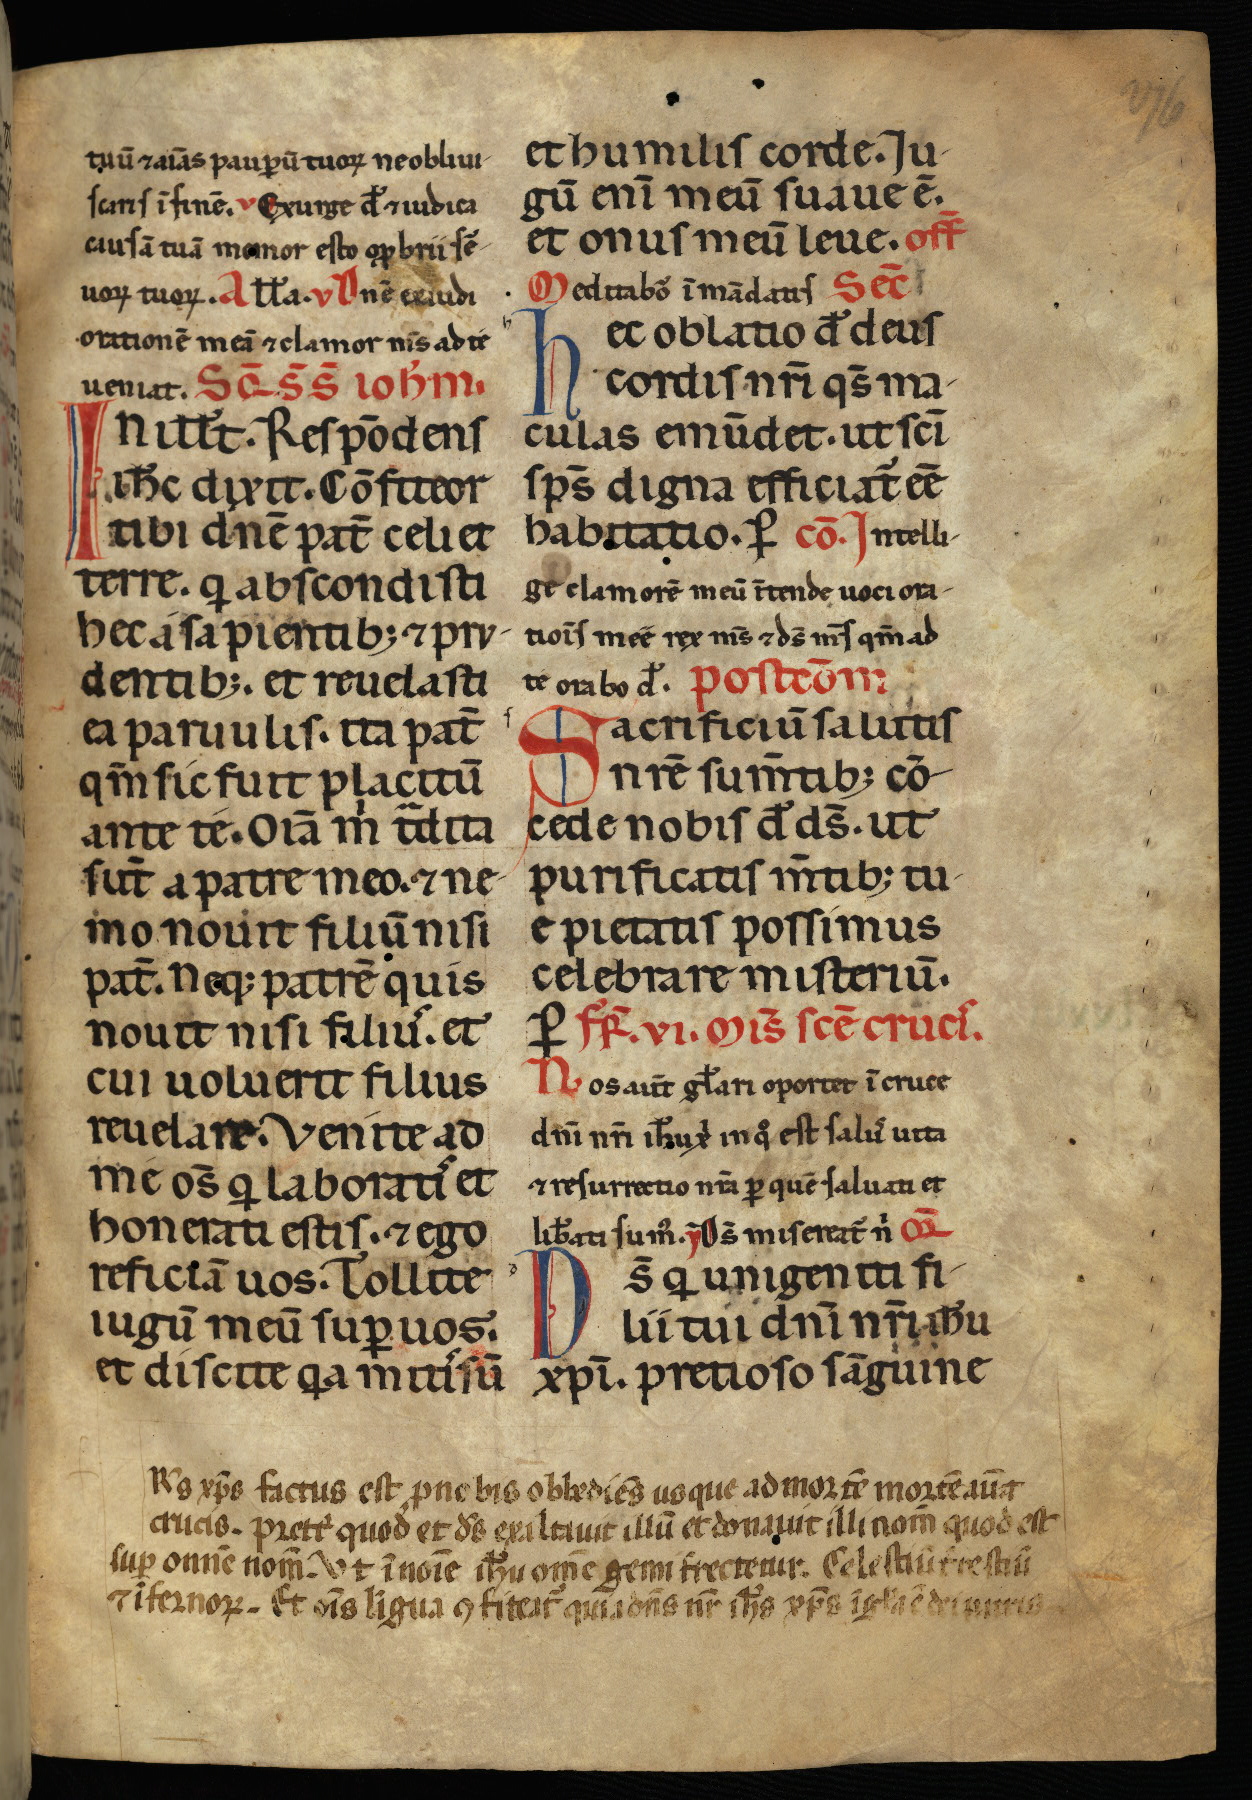 tuū ⁊ aīas paup̄ū tuoꝝ ne obliui-
scaris ī finē. v Exurge d̄ ⁊ iudica
causā tuā memor esto opp̱brii sē-
uoꝝ tuoꝝ. All̄a. v Dn̄e exaudi
orationē meā ⁊ clamor m̄s ad te
ueniat. Sc̄. s̄. s̄ ioh̄m.
IN ill̄t. Respōdens
ih̄c dixit. Cōfiteor
tibi dn̄e pat̄ celi et
terre. q abscondisti
hec a sapientib; ⁊ pru-
dentib;. et reuelasti
ea paruulis. ita pat̄
qm̄ sic fuit placitū
ante te. Oīa m̄ t̄dita
sūt a patre meo. ⁊ ne-
mo nouit filiū nisi
pat̄. Neq; patrē quis
nouit nisi filius. et
cui uoluerit filius
reuelare. Venite ad
me os̄ q laboratis et
honerati estis. ⁊ ego
reficiā uos. Tollite
iugū meū sup̱ uos.
et discite qa mitis sū
et humilis corde. Ju-
gū enī meū suaue ē.
et onus meū leue. off̄
Meditabor ī mādatis Sec̄
h ec oblatio d̄ deus
cordis nr̄i qs̄ ma-
culas emūdet. ut sc̄i
sps̄ digna efficiat̄ eē
habitatio. ꝑ cō. Intelli-
ge clamorē meū ītende uoci ora-
tiōis meē rex m̄s ⁊ ds̄ m̄s qm̄ ad
te orabo d̄. postcōm
Sacrificiū salutis
nr̄e sum̄tib; cō-
cede nobis d̄ ds̄. ut
purificatis m̄tib; tu-
e pietatis possimus
celebrare misteriū.
ꝑ fr̄. vi. Mis̄ sc̄e crucis.
Nos aūt gl̄ari oportet ī cruce
dn̄i nr̄i ih̄u xi in q° est salus uita
⁊ resurrectio nr̄a ꝑ quē saluati et
lib̄ati sum᷒. v̄ Ds̄ misereat̄ n̄ or̄
Ds̄ q unigeniti fi-
lii tui dn̄i nr̄i ih̄u
xpi̅. pretioso sāguine
ꝶs xp̄s factus est p nobis obbediēs usque ad mortē mortē aūt
crucis. propt̄ quod et ds̄ exaltauit illū et donauit illi nom̄ quod est
sup̱ omnē nom̄. Vt ī noīe ih̄u om̄e genu flectetur. Celestiū trestiū
⁊ īfernoꝝ. Et om̄s līgua ꝯfiteat̄ quia dn̄s nr̄ ih̄s xp̄s ī gl̄ia ē dei patris